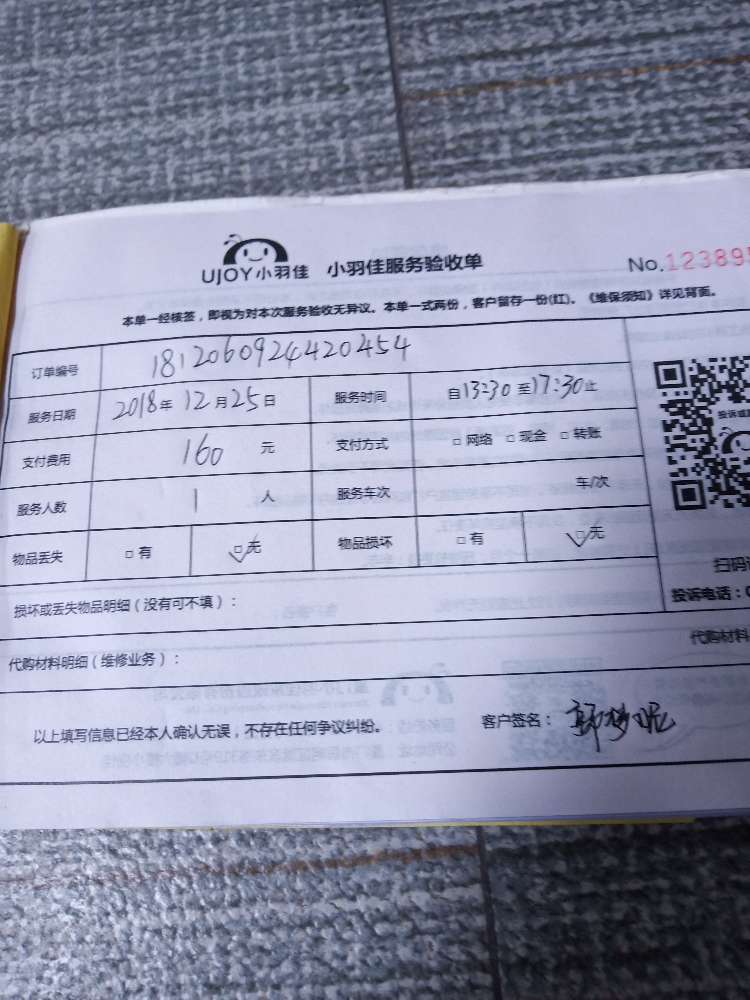 UJOY小羽佳 小羽佳服务验收单 No.123895
本单一经核签，即视为对本次服务验收无异议。本单一式两份，客户留存一份(红)。《维保须知》详见背面。
订单编号 1812060924420454
服务日期 2018年12月25日 服务时间 自13:30至17:30止
支付费用 160 元 支付方式 □网络 □现金 □转账
投诉或
服务人数 1 人 服务车次 车/次
物品丢失 □有 □无 物品损坏 □有 □无
扫码
损坏或丢失物品明细（没有可不填）：
投诉电话：
代购材料明细（维修业务）： 代购材料
以上填写信息已经本人确认无误，不存在任何争议纠纷。 客户签名：